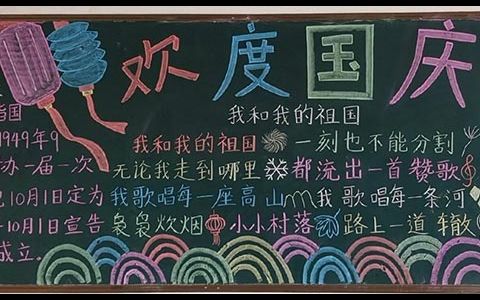 欢度国庆
我和我的祖国
我和我的祖国 一刻也不能分割
无论我走到哪里 都流出一首赞歌
我歌唱每一座高山 我歌唱每一条河
袅袅炊烟 小小村落 路上一道辙
国
1949年9
办一届一次
10月1日定为
10月1日宣告
成立。